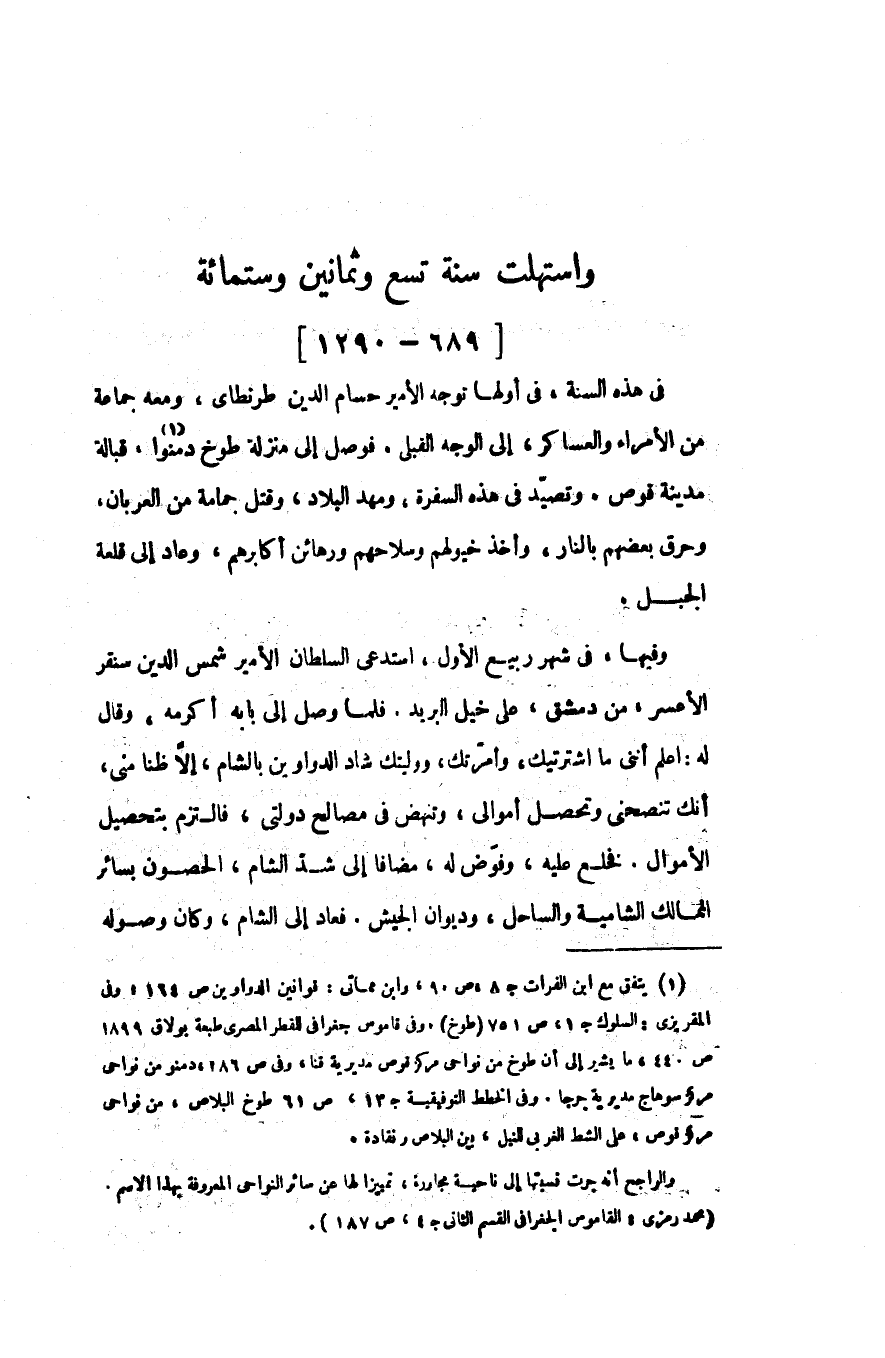 واستهلت سنة تسع وثمانين وستمائة
[ ٦٨٩ – ١٢٩٠ ]
فى هذه السنة ، فى أولهـا توجه الأمير حسام الدين طرنطاى ، ومعه جماعة
من الأمراء والعساكر ، إلى الوجه القبلى . فوصل إلى منزلة طوخ دمنوا (١) ، قبالة
مدينة قوص . وتصيّد فى هذه السفرة ، ومهد البلاد ، وقتل جماعة من العربان،
وحرق بعضهم بالنار ، وأخذ خيولهم وسلاحهم ورهائن أكابرهم ، وعاد إلى قلعة
الجبـــل .
وفيهـا ، فى شهر ربيـع الأول ، استدعى السلطان الأمير شمس الدين سنقر
الأعسر ، من دمشق ، على خيل البريد . فلمـا وصل إلى بابه أكرمه ، وقال
له : اعلم أننى ما اشتريتك، وأمرّتك، ووليتك شاد الدواوين بالشام ، إلاَّ ظنا منى،
أنك تنصحنى وتحصـل أموالى ، وتنهض فى مصالح دولتى ، فالـتزم بتحصيل
الأموال . فخلـع عليه ، وفوّض له ، مضافا إلى شـدّ الشام ، الحصـون بسائر
الممـالك الشاميـة والساحل ، وديوان الجيش . فعاد إلى الشام ، وكان وصـوله
(١) يتفق مع ابن الفرات جـ ٨ ،ص ٩٠ ، وابن مماتى : قوانين الدواوين ص ١٦٤ ، وفى
المقريزى : السلوك جـ ١ ، ص ٧٥١ (طوخ) . وفى قاموس جغرافى للقطر المصرى طبعة بولاق ١٨٩٩
ص ٤٤٠ ، ما يشير إلى أن طوخ من نواحى مركز قوص مديرية قنا ، وفى ص ٢٨٦ ،دمنو من نواحى
مركز سوهاج مديرية جرجا . وفى الخطط التوفيقيـة جـ ١٣ ، ص ٦١ طوخ البلاص ، من نواحى
مركز قوص ، على الشط الغربى للنيل ، بين البلاص ونقادة .
والراجح أنه جرت نسبتها إلى ناحيـة مجاورة ، تمييزا لها عن سائر النواحى المعروفة بهذا الاسم .
(محمد رمزى : القاموس الجغرافى القسم الثانى جـ ٤ ، ص ١٨٧ ) .